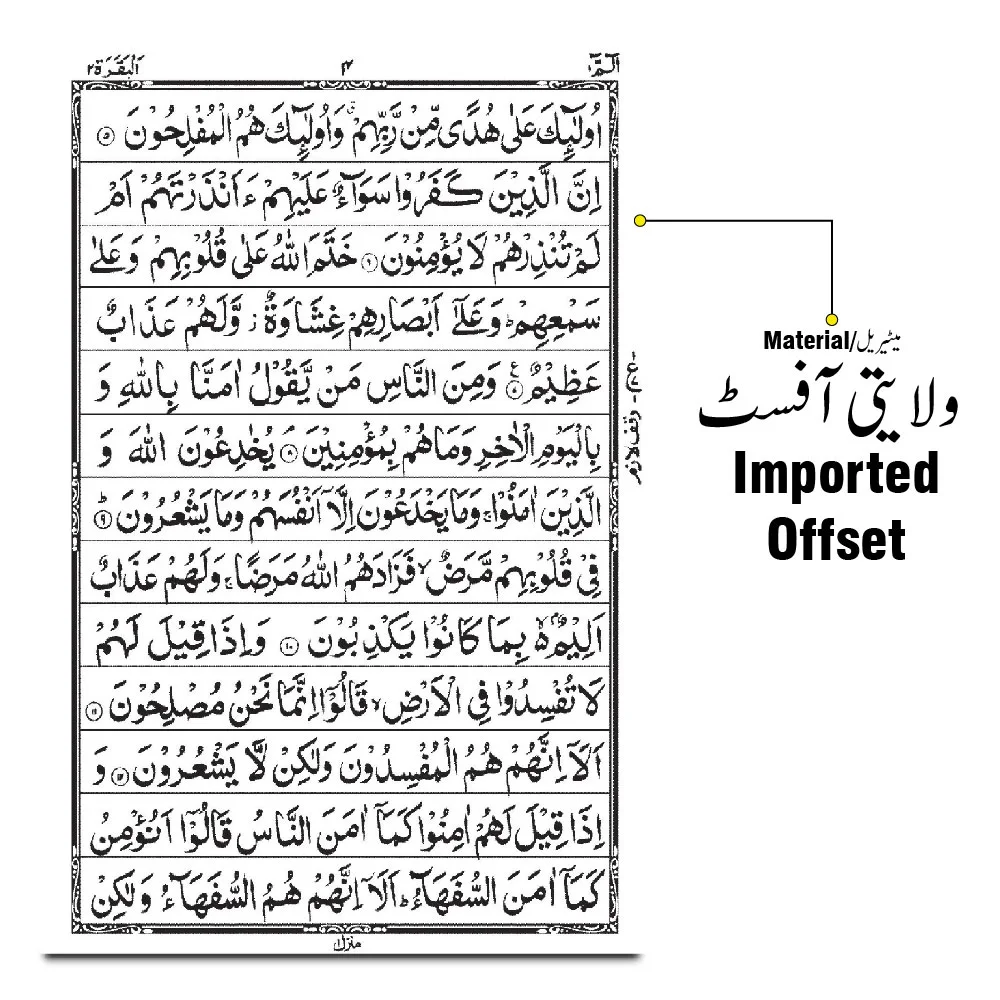 الٓمّٓ ۱ ۴ اَلْبَقَرَة ۲
اُولٰٓئِكَ عَلٰى هُدًى مِّنْ رَّبِّهِمْ ۛ وَاُولٰٓئِكَ هُمُ الْمُفْلِحُوْنَ ۵
اِنَّ الَّذِيْنَ كَفَرُوْا سَوَآءٌ عَلَيْهِمْ ءَاَنْذَرْتَهُمْ اَمْ
لَمْ تُنْذِرْهُمْ لَا يُؤْمِنُوْنَ ۶ خَتَمَ اللّٰهُ عَلٰى قُلُوْبِهِمْ وَعَلٰى
سَمْعِهِمْ ؕ وَعَلٰٓى اَبْصَارِهِمْ غِشَاوَةٌ ز وَّلَهُمْ عَذَابٌ
عَظِيْمٌ ۷ وَمِنَ النَّاسِ مَنْ يَّقُوْلُ اٰمَنَّا بِاللّٰهِ وَ
بِالْيَوْمِ الْاٰخِرِ وَمَا هُمْ بِمُؤْمِنِيْنَ ۸ يُخٰدِعُوْنَ اللّٰهَ وَ
الَّذِيْنَ اٰمَنُوْا ۚ وَمَا يَخْدَعُوْنَ اِلَّآ اَنْفُسَهُمْ وَمَا يَشْعُرُوْنَ ؕ ۹
فِيْ قُلُوْبِهِمْ مَّرَضٌ ۙ فَزَادَهُمُ اللّٰهُ مَرَضًا ۚ وَلَهُمْ عَذَابٌ
اَلِيْمٌۢ ۙ بِمَا كَانُوْا يَكْذِبُوْنَ ۱۰ وَاِذَا قِيْلَ لَهُمْ
لَا تُفْسِدُوْا فِي الْاَرْضِ ۙ قَالُوْٓا اِنَّمَا نَحْنُ مُصْلِحُوْنَ ۱۱
اَلَآ اِنَّهُمْ هُمُ الْمُفْسِدُوْنَ وَلٰكِنْ لَّا يَشْعُرُوْنَ ۱۲ وَ
اِذَا قِيْلَ لَهُمْ اٰمِنُوْا كَمَآ اٰمَنَ النَّاسُ قَالُوْٓا اَنُؤْمِنُ
كَمَآ اٰمَنَ السُّفَهَآءُ ؕ اَلَآ اِنَّهُمْ هُمُ السُّفَهَآءُ وَلٰكِنْ
منزل ۱
وقف لازم
Material/میٹیریل
ولایتی آفسٹ
Imported
Offset